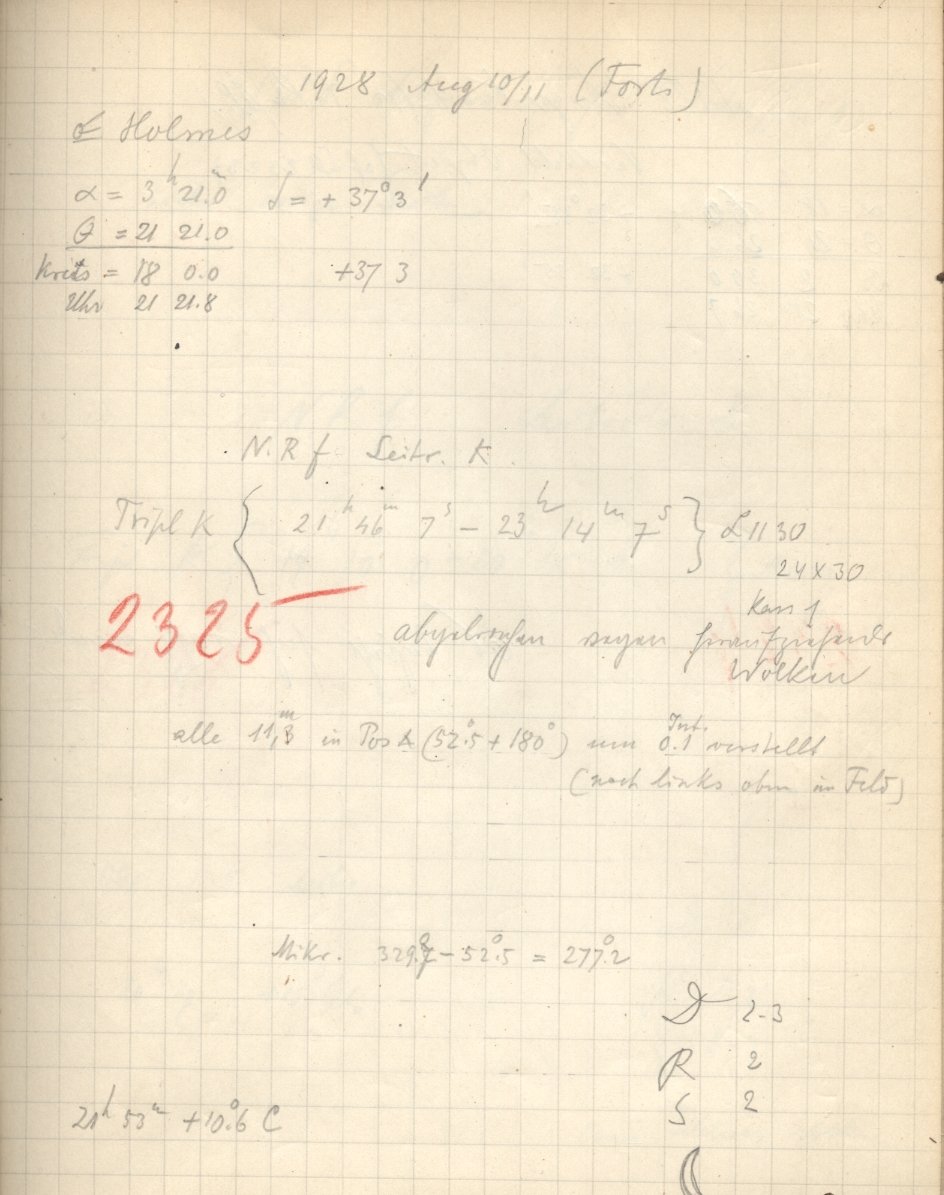 1928 Aug 10/11 (Forts)
☄ Holmes
α = 3h 21m.0 δ = + 37° 3'
θ = 21 21.0
Kreis = 18 0.0 +37 3
Uhr 21 21.8
N. R f. Leitr. K.
Tripl K { 21h 46m 7s – 23h 14m 7s } L 11 30
24 x 30
Kass 1
2325
abgebrochen wegen heraufziehende
Wolken
alle 11,m3 in Pos ∡ (52°.5 + 180°) um 0.1 Int. verstellt
(nach links oben im Feld)
Mikr. 329°.7 – 52°.5 = 277°.2
D 2-3
R 2
S 2
21h 53m +10°.6 C